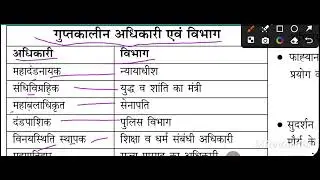 गुप्तकालीन अधिकारी एवं विभाग
अधिकारी विभाग
महादंडनायक न्यायाधीश
संधिविग्रहिक युद्ध व शांति का मंत्री
महाबलाधिकृत सेनापति
दंडपाशिक पुलिस विभाग
विनयस्थिति स्थापक शिक्षा व धर्म संबंधी अधिकारी
का अधिकारी
• फाह्यान
प्रयोग व
• सुदर्शन
मौर्य के